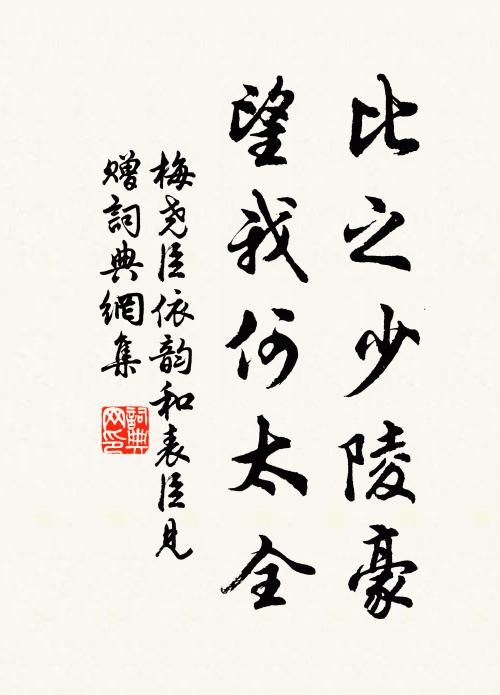 比之少陵豪
望我何太全
梅尧臣依韵和表臣见
赠詞典網集
詞典
网印